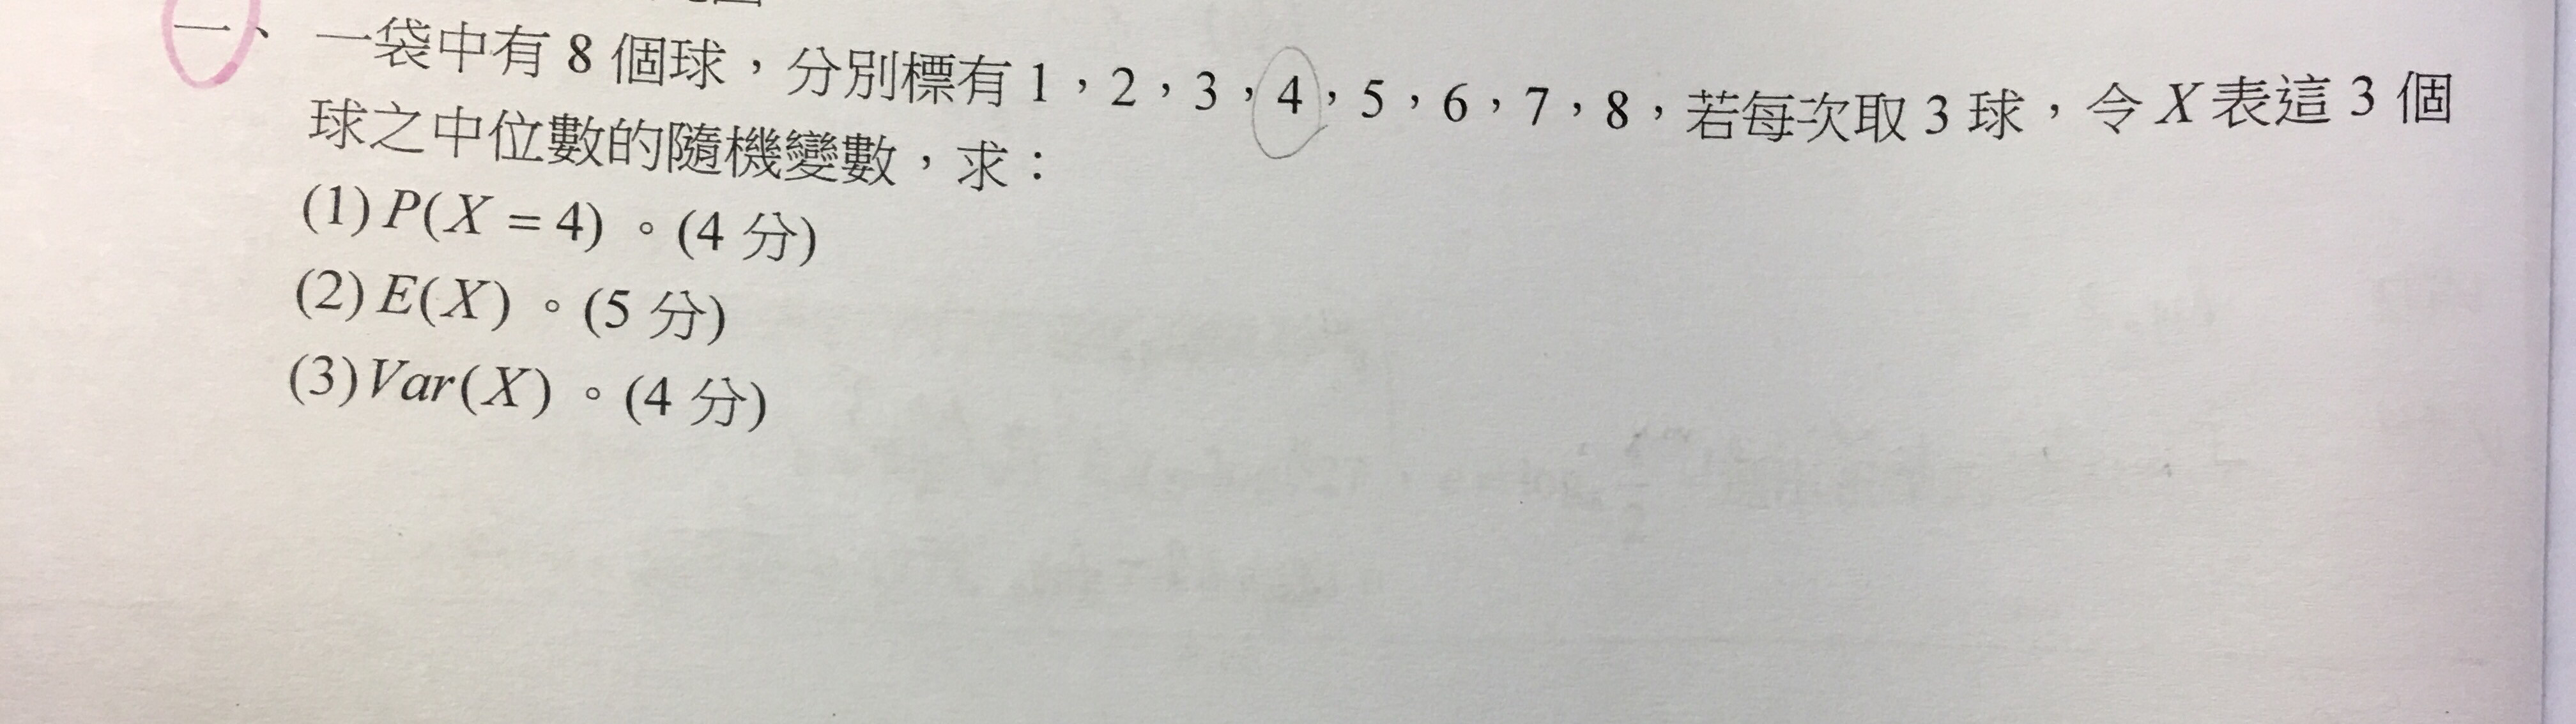 一、一袋中有 8 個球，分別標有 1，2，3，4，5，6，7，8，若每次取 3 球，令 X 表這 3 個
球之中位數的隨機變數，求：
(1) P(X = 4) 。(4 分)
(2) E(X) 。(5 分)
(3) Var(X) 。(4 分)